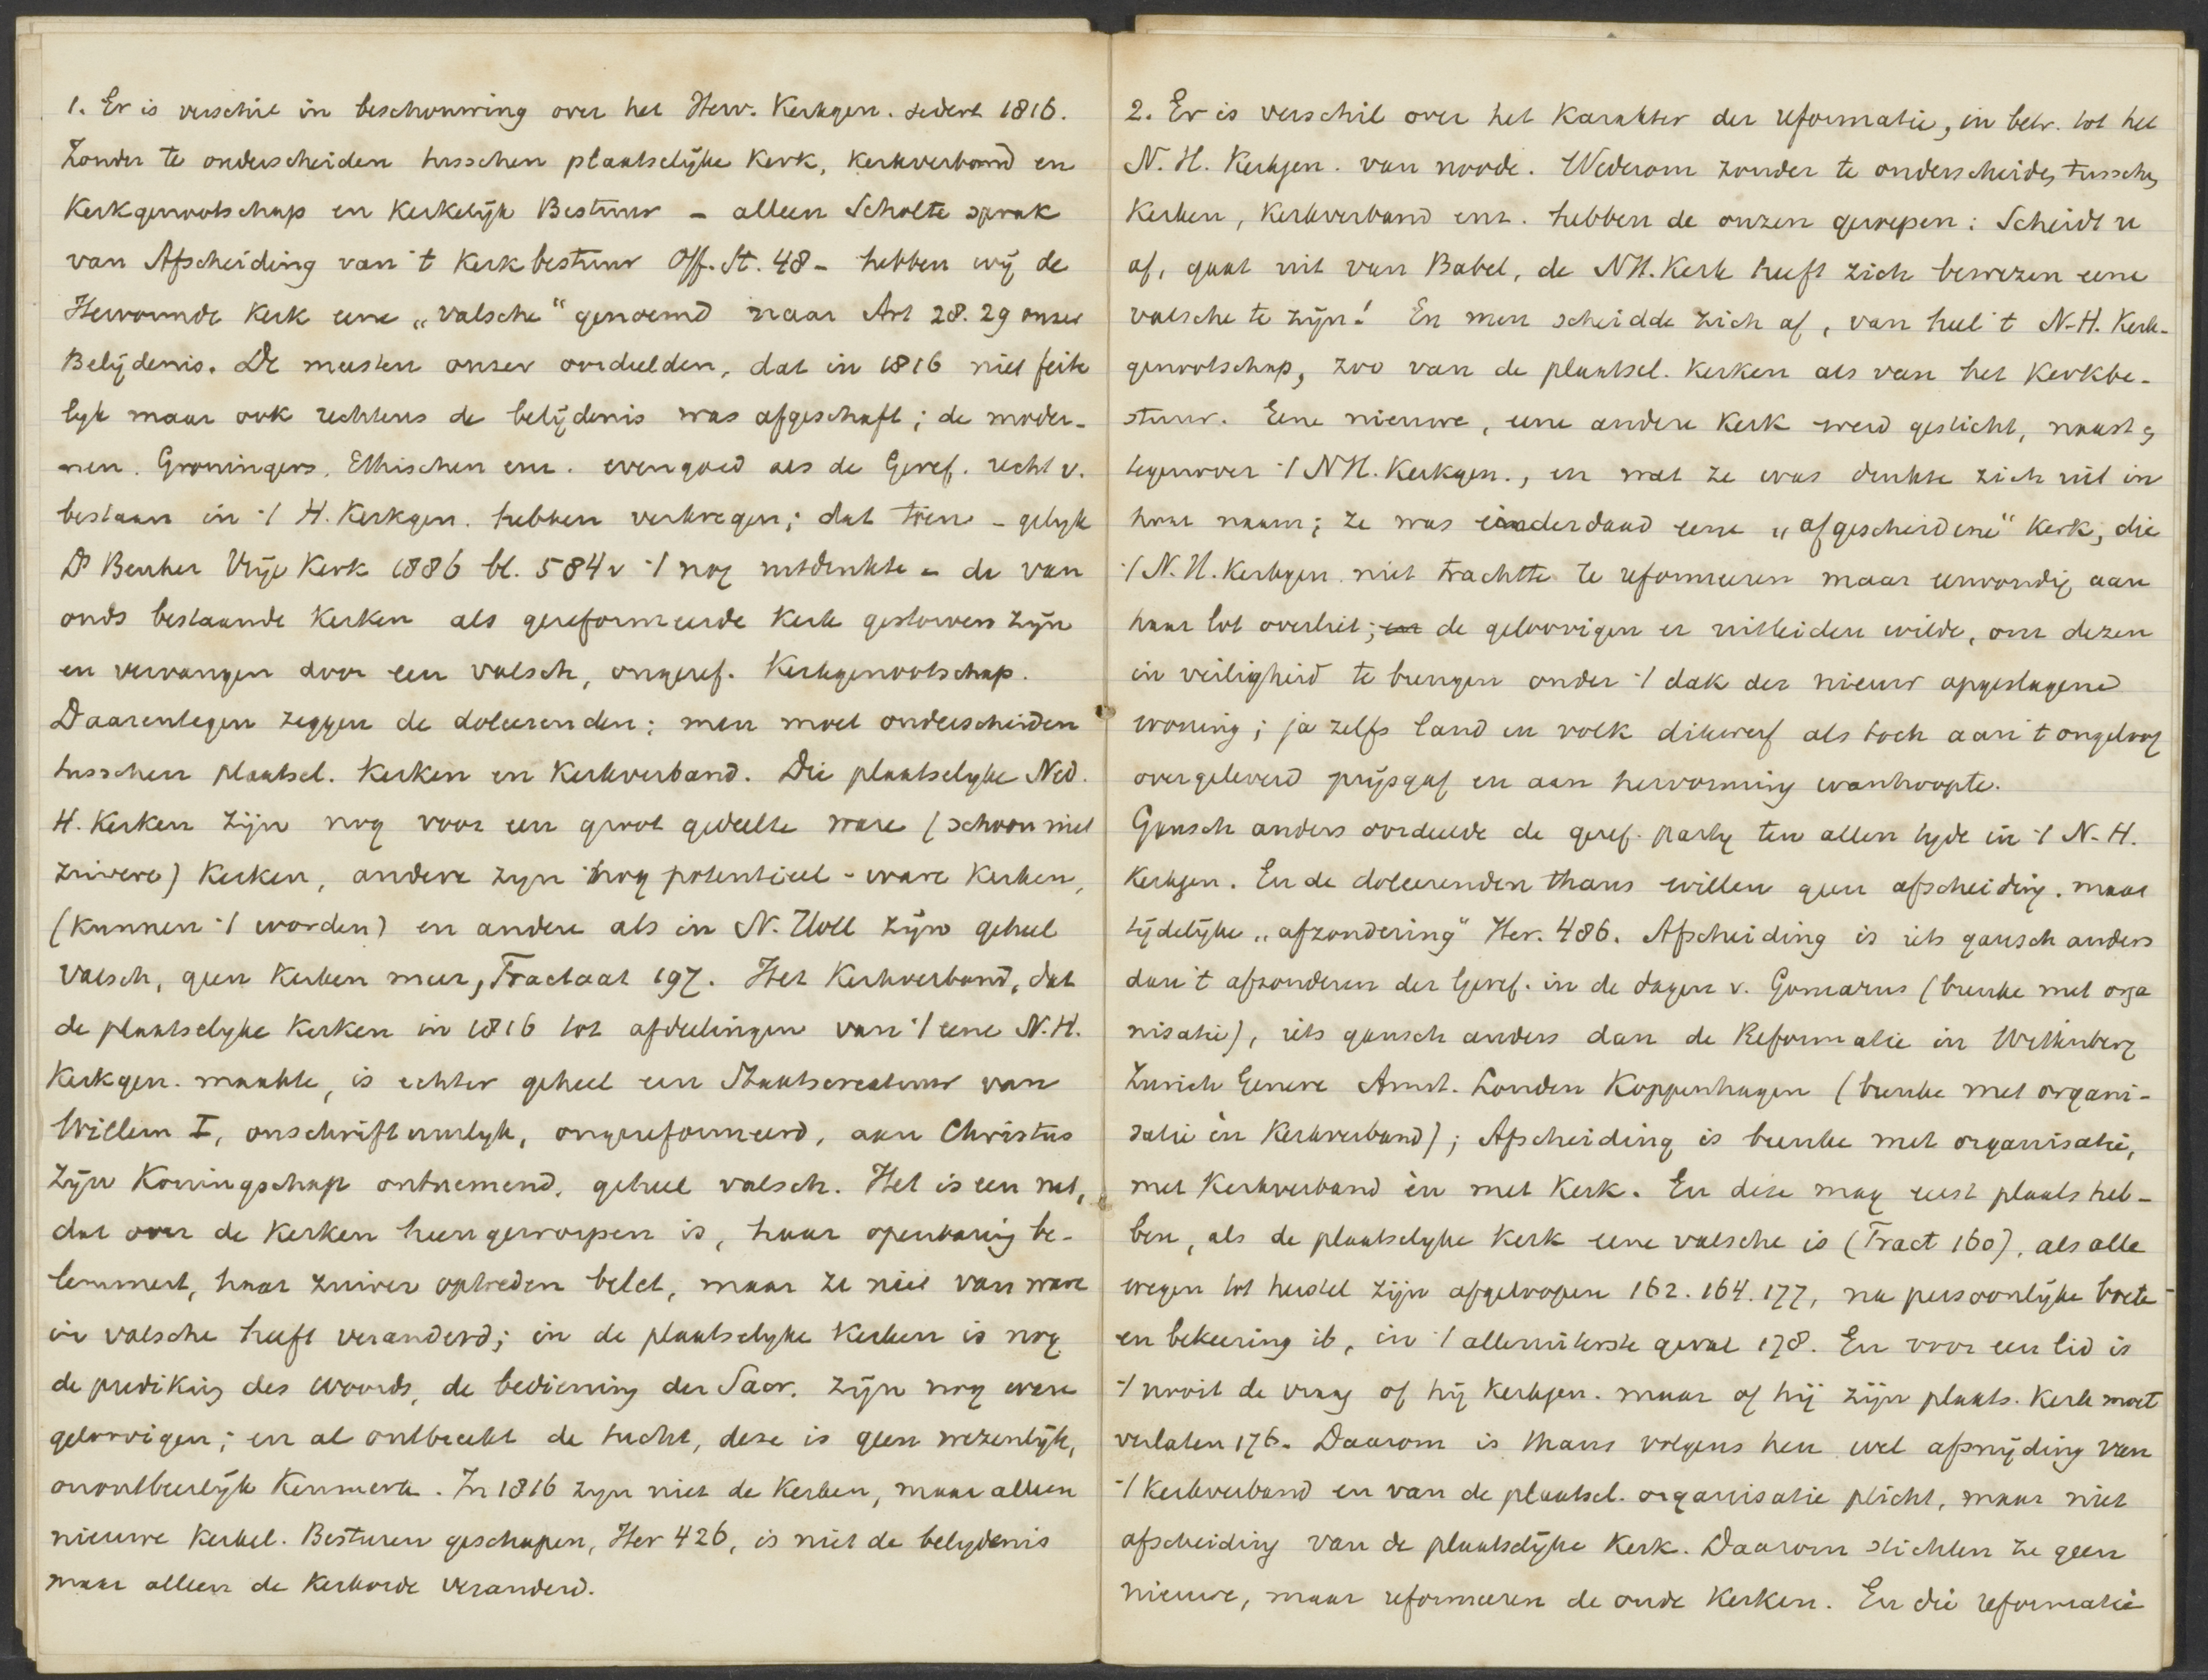 1. Er is verschil in beschouwing over het Herv. Kerkgen. sedert 1816.
Zonder te onderscheiden tusschen plaatselijke Kerk, Kerkverband en
Kerkgenootschap en Kerkelijk Bestuur – alleen Scholte sprak
van Afscheiding van 't Kerkbestuur Off. St. 48 – hebben wij de
Hervormde Kerk eene „valsche" genoemd naar Art 28. 29 onzer
Belijdenis. De meesten onzer oordeelden, dat in 1816 niet feite
lyk maar ook rechtens de belijdenis was afgeschaft; de moder-
nen. Groningers, Ethischen enz. evengoed als de Geref. recht v.
bestaan in 't H. Kerkgen. hebben verkregen; dat toen – gelyk
Ds Beuker Vrije Kerk 1886 bl. 584 v 't nog uitdrukte – de van
ouds bestaande Kerken als gereformeerde Kerk gestorven zijn
en vervangen door een valsch, ongeref. Kerkgenootschap.
Daarentegen zeggen de doleerenden: men moet onderscheiden
tusschen plaatsel. Kerken en Kerkverband. Die plaatselyke Ned.
H. Kerken zijn nog voor een groot gedeelte ware (schoon niet
zuivere) Kerken, andere zyn nog potentieel-ware Kerken,
(kunnen 't worden) en andere als in N. Holl zijn geheel
valsch, geen Kerken meer, Tractaat 197. Het Kerkverband, dat
de plaatselyke Kerken in 1816 tot afdeelingen van 't eene N.H.
Kerkgen. maakte, is echter geheel een Staatscreatuur van
Willem I, onschriftuurlyk, ongereformeerd, aan Christus
zijn Koningschap ontnemend, geheel valsch. Het is een net,
dat over de Kerken heengeworpen is, haar openbaring be-
lemmert, haar zuiver optreden belet, maar ze niet van ware
in valsche heeft veranderd; in de plaatselyke Kerken is nog
de prediking des Woords, de bediening der Sacr. zijn nog ware
geloovigen; en al ontbreekt de tucht, deze is geen wezenlijk,
onontbeerlijk Kenmerk. In 1816 zyn niet de Kerken, maar alleen
nieuwe Kerkel. Besturen geschapen, Her 426, is niet de belydenis
maar alleen de Kerkorde veranderd.
2. Er is verschil over het Karakter der reformatie, in betr. tot het
N. H. Kerkgen. van noode. Wederom zonder te onderscheiden tusschen
Kerken, Kerkverband enz. hebben de onzen geroepen: Scheidt u
af, gaat uit van Babel, de NH. Kerk heeft zich bewezen eene
valsche te zijn! En men scheidde zich af, van heel 't N.H. Kerk-
genootschap, zoo van de plaatsel. Kerken als van het Kerkbe-
stuur. Eene nieuwe, eene andere Kerk werd gesticht, naast en
tegenover 't NH. Kerkgen., en wat ze was drukte zich uit in
haar naam; ze was inderdaad eene „afgescheidene" Kerk, die
't N.H. Kerkgen. niet trachtte te reformeeren maar eenvoudig aan
haar lot overliet; de geloovigen er uitleiden wilde, om dezen
in veiligheid te brengen onder 't dak der nieuw opgeslagene
woning; ja zelfs land en volk dikwerf als toch aan 't ongeloof
overgeleverd prijsgaf en aan hervorming wanhoopte.
Gansch anders oordeelde de geref. party ten allen tyde in 't N.H.
Kerkgen. En de doleerenden thans willen geen afscheiding, maar
tijdelijke „afzondering" Her. 486. Afscheiding is iets gansch anders
dan 't afzonderen der Geref. in de dagen v. Gomarus (breuke met orga
nisatie), iets gansch anders dan de Reformatie in Wittenberg
Zurich Geneve Amst. Londen Koppenhagen (breuke met organi-
satie èn Kerkverband); Afscheiding is breuke met organisatie,
met Kerkverband èn met Kerk. En deze mag eerst plaats heb-
ben, als de plaatselyke Kerk eene valsche is (Tract 160), als alle
wegen tot herstel zijn afgeloopen 162. 164. 177, na persoonlijke boete
en bekeering ib, in 't alleruiterste geval 178. En voor een lid is
't nooit de vraag of hij Kerkgen. maar of hij zijn plaats. Kerk moet
verlaten 176. Daarom is thans volgens hen wel afsnijding van
't Kerkverband en van de plaatsel. organisatie plicht, maar niet
afscheiding van de plaatselijke Kerk. Daarom stichten ze geen
nieuwe, maar reformeeren de oude Kerken. En die reformatie